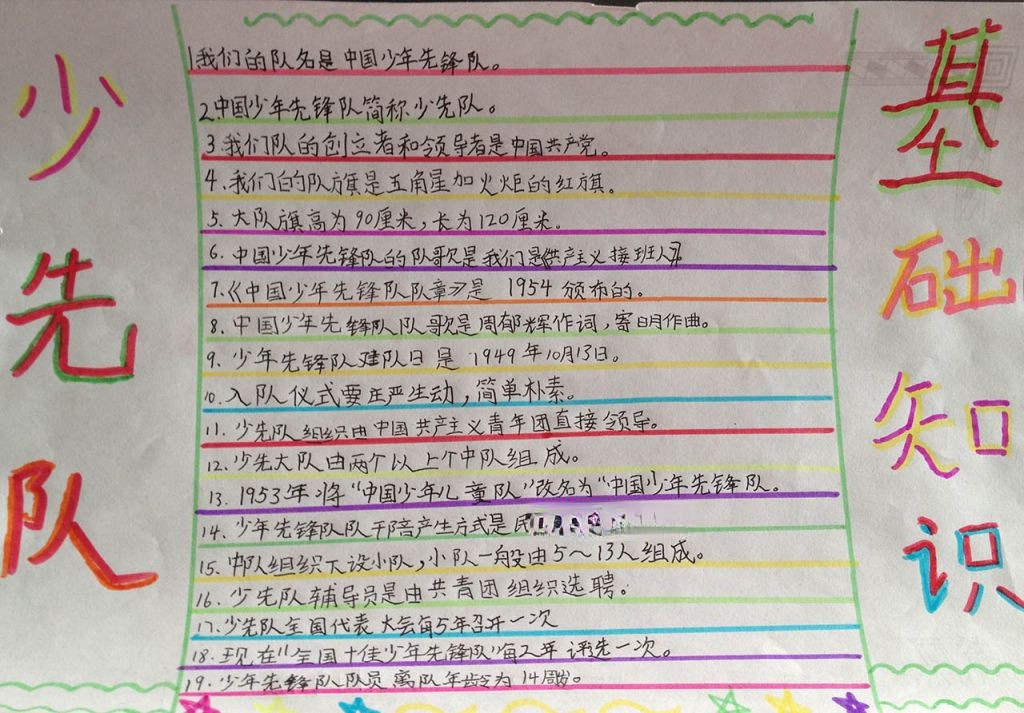 少先队
基础知识
1.我们的队名是中国少年先锋队。
2.中国少年先锋队简称少先队。
3.我们队的创立者和领导者是中国共产党。
4.我们的队旗是五角星加火炬的红旗。
5.大队旗高为90厘米,长为120厘米。
6.中国少年先锋队的队歌是我们是《共产主义接班人》
7.《中国少年先锋队队章》是 1954 颁布的。
8.中国少年先锋队队歌是周郁辉作词,寄明作曲。
9.少年先锋队建队日是 1949年10月13日。
10.入队仪式要庄严生动,简单朴素。
11.少先队组织由中国共产主义青年团直接领导。
12.少先大队由两个以上个中队组成。
13.1953年将“中国少年儿童队”改名为“中国少年先锋队。
14.少年先锋队队干部产生方式是民
15.中队组织下设小队,小队一般由5～13人组成。
16.少先队辅导员是由共青团组织选聘。
17.少先队全国代表大会每5年召开一次
18.现在“全国十佳少年先锋队”每2年评选一次。
19.少年先锋队队员离队年龄为14周岁。